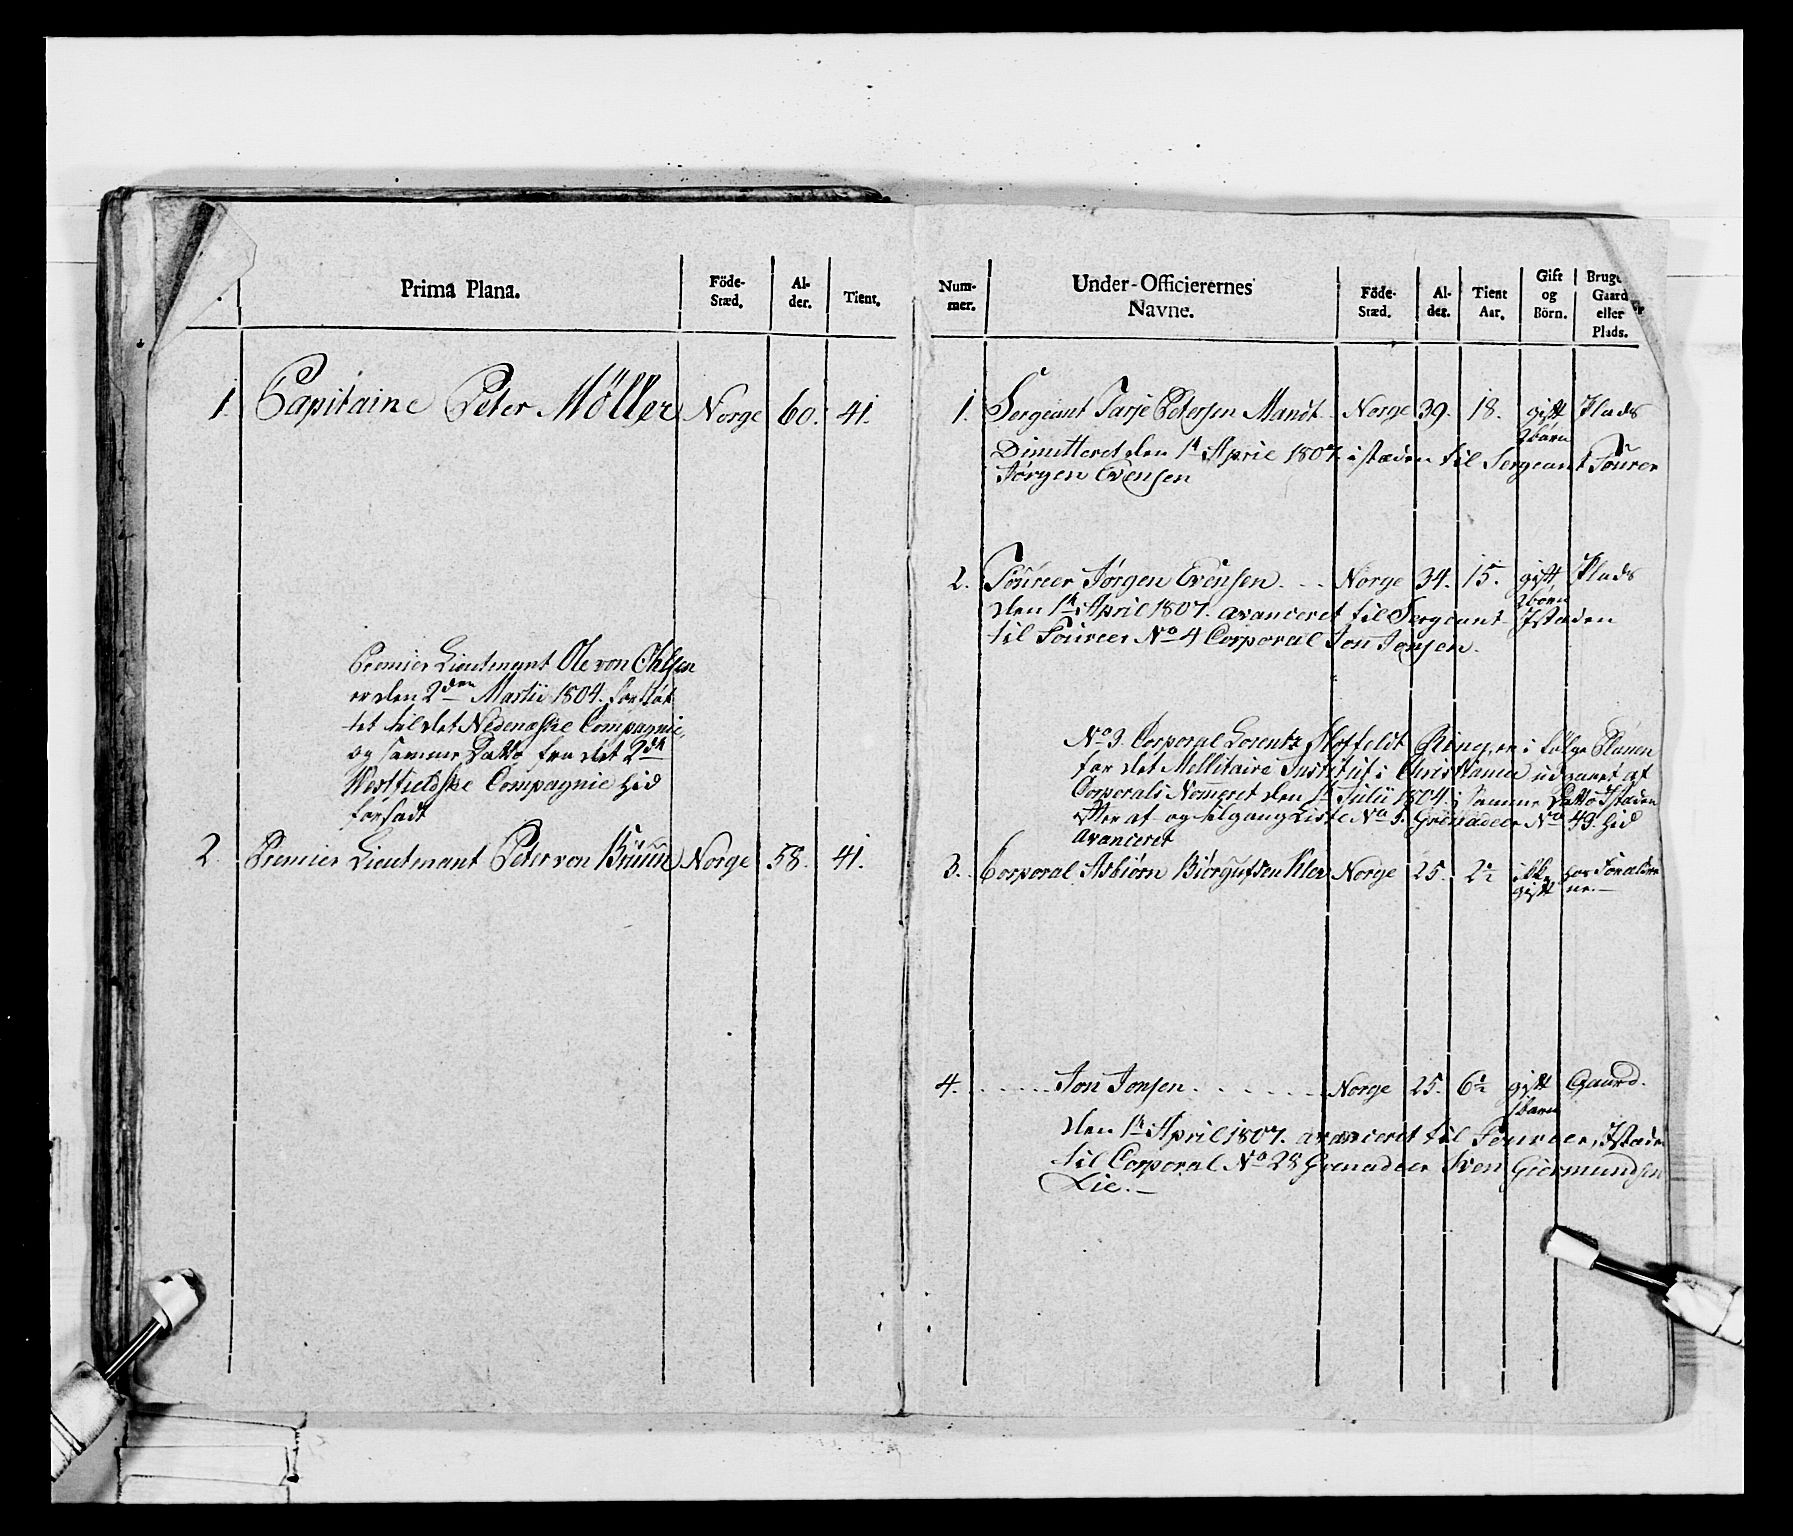 Prima Plana. Föde-Stæd. Al-der. Tient.
1. Capitaine Peter Möller Norge 60. 41.
Premier Lieutenant Ole von Ohlsen
er den 2den Martii 1804. forflöt
tet til det Nedenæske Compagnie,
og samme Datto fra det 2det
Westfieldske Compagnie hid
forsadt
2. Premier Lieutenant Peter von Bruun Norge 58. 41.
Num-mer. Under-Officierernes Navne. Föde-Stæd. Al-der. Tient Aar. Gift og Börn. Bruger Gaard eller Plads.
1. Sergeant Tarje Petersen Mandt Norge 39. 18. gift 2 börn Plads
Dimitteret den 1te April 1807. istæden til Sergeant Fourer
Jörgen Evensen
2. Foureer Jörgen Evensen Norge 34. 15. gift 2 börn Plads
den 1te April 1807. avanceret til Sergeant Istæden
til Foureer No 4 Corporal Jon Jonsen.
No 3. Corporal Lorentz Hoffeldt Ring, er i fölge Planen
for det Millitaire Institut i Christiania udgaaet af
Corporals Nomeret den 1te Julii 1804. i samme Datto Istæden
efter af og tilgang Liste No 3. Grenadeer No 49. hid
avanceret
3. Corporal Asbiörn Biörgufsen Norge 25. 2½ ikke gift hos Forældre
ne.
4. Jon Jonsen Norge 25. 6½ gift 1 barn Gaard.
den 1te April 1807. avanceret til Foureer, Istæden
til Corporal No 28 Grenadeer Sven Giermundsen
Lie.